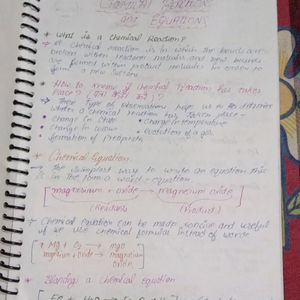 CHEMICAL REACTIONS
AND EQUATIONS
* What is a Chemical Reaction?
→ A chemical reaction is in which the bonds are
broken within reactant molecules and new bonds
are formed within product molecules in order to
form a new substance
* How to know if chemical reaction has taken
place?
→ type of observation help us to determine
whether a chemical reaction has taken place -
• change in state • change in temperature
• change in colour • evolution of a gas
• formation of precipitate
* Chemical Equation
→ The simplest way to write an equation
is in the form a word-equation
magnesium + oxide → magnesium oxide
(Reactants) (Product)
→ Chemical equation can be made concise and useful
if we use chemical formulas instead of words
Mg + O₂ → MgO
magnesium + oxide → magnesium
oxide
* a chemical equation
Fe + H₂O →